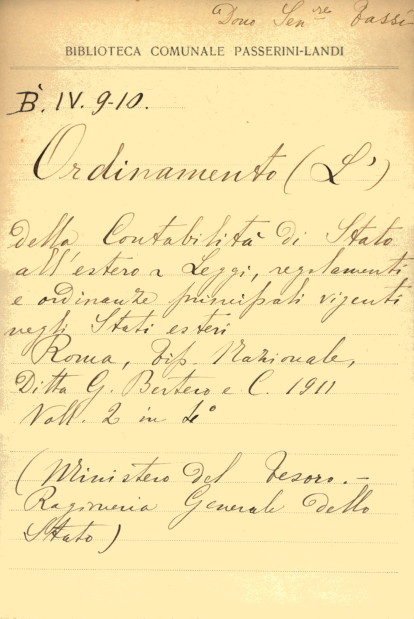 Dono Sen.re Fassi
BIBLIOTECA COMUNALE PASSERINI-LANDI
B. IV. 9-10.
Ordinamento (L')
della Contabilità di Stato
all'estero. Leggi, regolamenti
e ordinanze principali vigenti
negli Stati esteri
Roma, Tip. Nazionale,
Ditta G. Bertero e C. 1911
Voll. 2 in 4°
(Ministero del Tesoro. -
Ragioneria Generale dello
Stato)